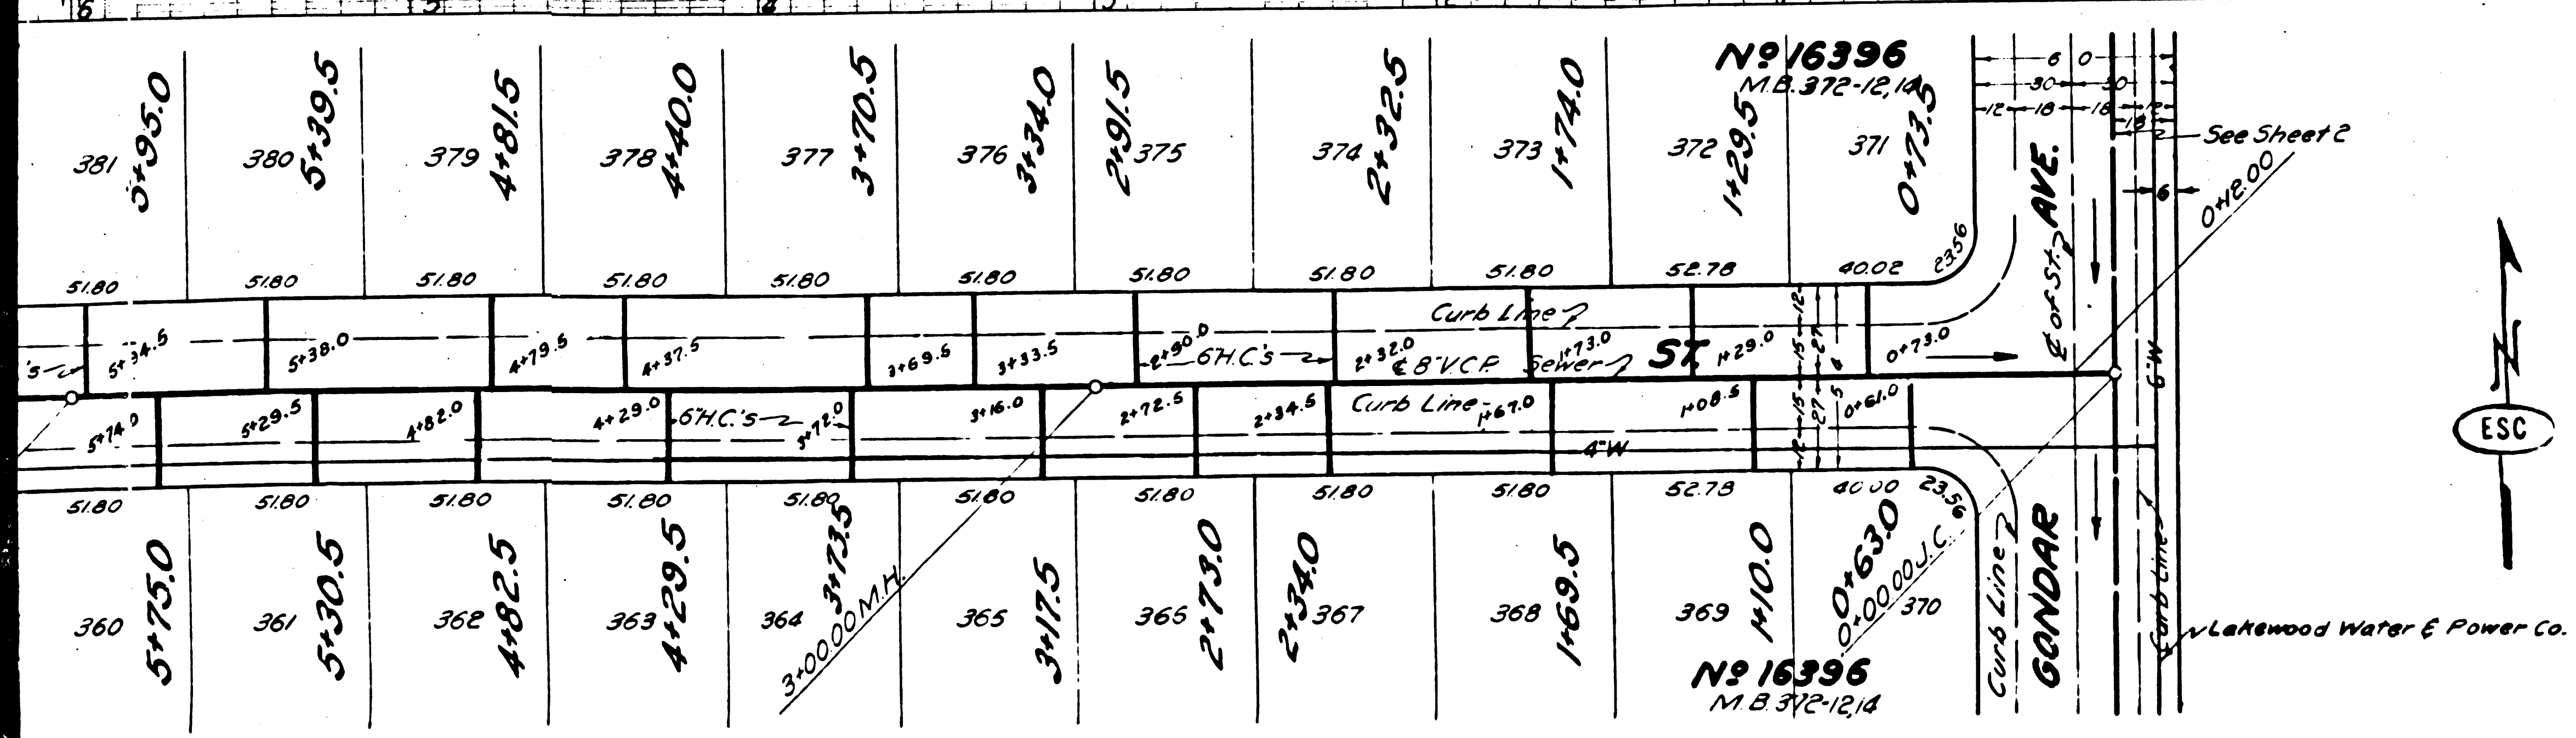 6 5 4 3
No 16396
M.B. 372-12,14
6 0
30 30
12 18 18 12
18
2
See Sheet 2
6
0+12.00
381 5+95.0 380 5+39.5 379 4+81.5 378 4+40.0 377 3+70.5 376 3+34.0 2+91.5 375 374 2+32.5 373 1+74.0 372 1+29.5 371 0+73.5
AVE.
℄ of St.
51.80 51.80 51.80 51.80 51.80 51.80 51.80 51.80 51.80 52.78 40.02 23.56
Curb Line
's 5+94.5 5+38.0 4+79.5 4+37.5 3+69.5 3+33.5 2+90.0 6"H.C.'s 2+32.0 ℄ 8" V.C.P. Sewer 1+73.0 ST. 1+29.0 0+73.0
12 15 27 54
6"W
5+74.0 5+29.5 4+82.0 4+29.0 6"H.C.'s 3+72.0 3+16.0 2+72.5 2+34.5 Curb Line 1+67.0 1+08.5 0+61.0
12 15 27
4"W
ESC
51.80 51.80 51.80 51.80 51.80 51.80 51.80 51.80 51.80 52.78 40.00 23.56
360 5+75.0 361 5+30.5 362 4+82.5 363 4+29.5 364 3+73.5 365 3+17.5 366 2+73.0 2+34.0 367 368 1+69.5 369 1+10.0 0+63.0 370
3+00.00 M.H.
0+00.00 J.C.
Curb Line
GONDAR
Curb Line
Lakewood Water & Power Co.
No 16396
M.B. 372-12,14